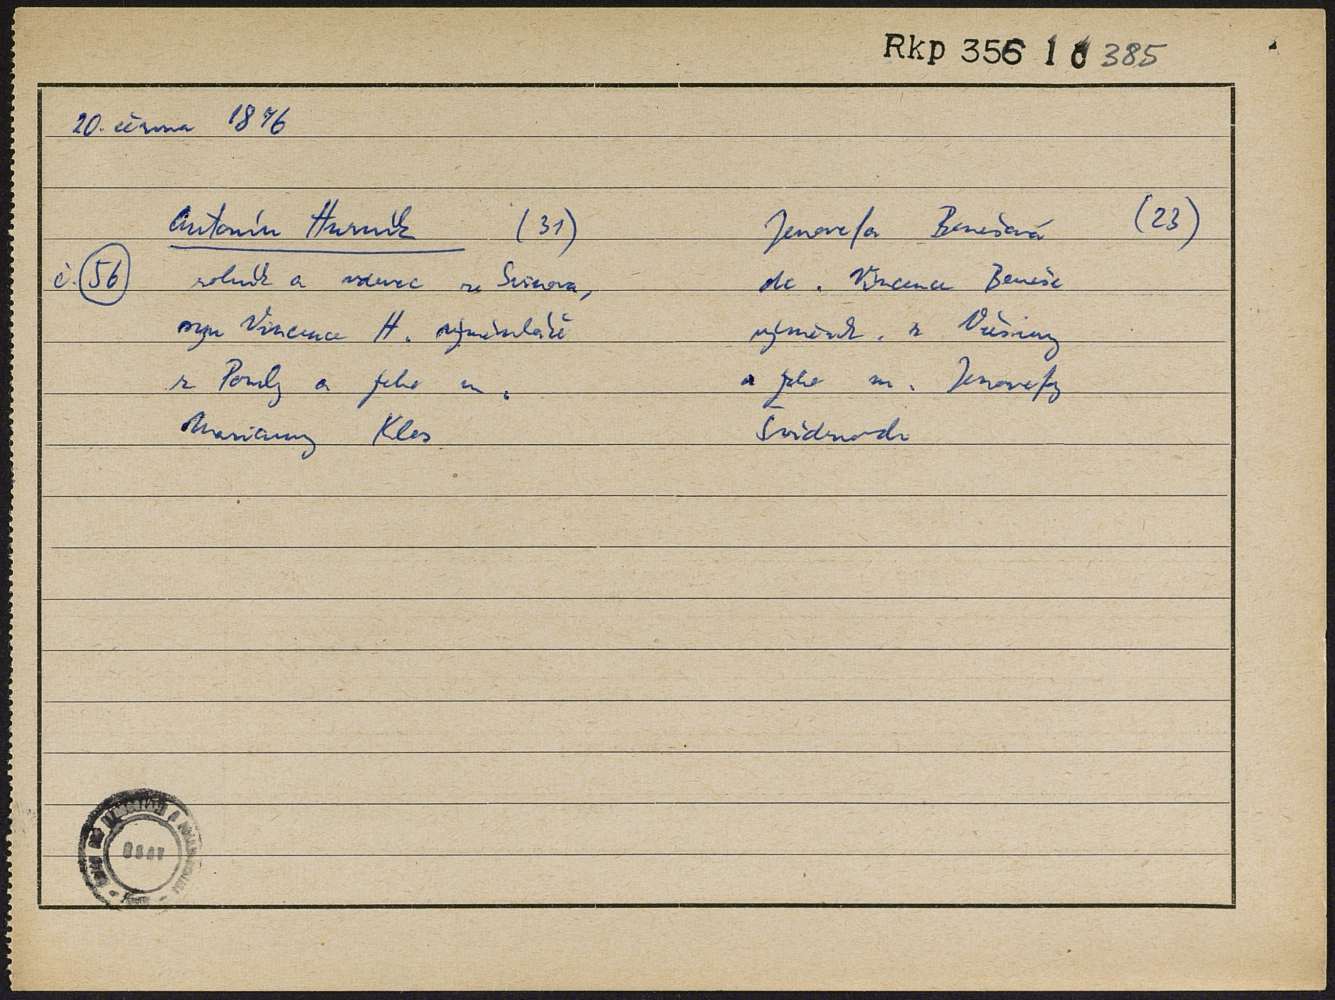 Rkp 356 1 6 385
20. června 1876
Antonín Hurník (31)
č. 56 rolník a vdovec ze Svinova,
syn Vincence H. výměnkáře
z Poruby a jeho m.
Marianny Klos
Jenovefa Benešová (23)
dc. Vincence Beneše
výměnk. z Vřesiny
a jeho m. Jenovefy